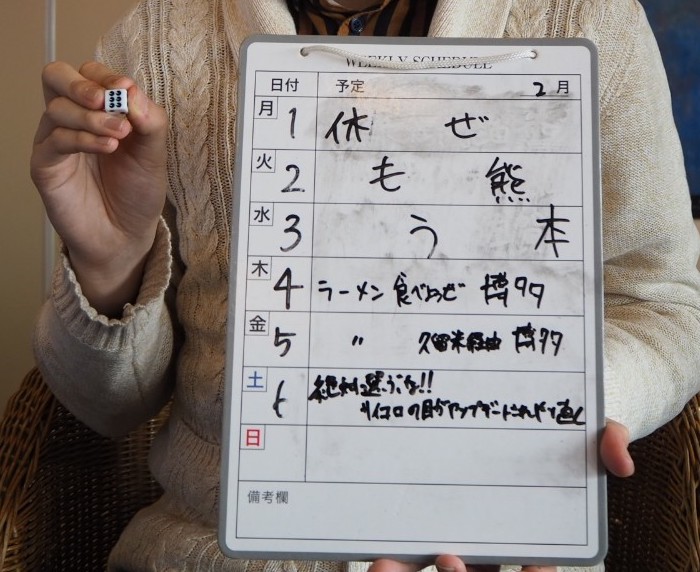 WEEKLY SCHEDULE
日付 予定 2月
月 1 休 ぜ
火 2 も 熊
水 3 う 本
木 4 ラーメン 食べようぜ 博多
金 5 〃 久留米経由 博多
土 6 絶対選ぶな!!
サイコロの目がアップデートされやり直し
日
備考欄